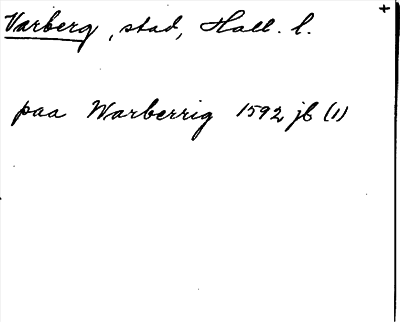 Varberg, stad, Hall. l.
+
paa Warberrig 1592 jb (1)